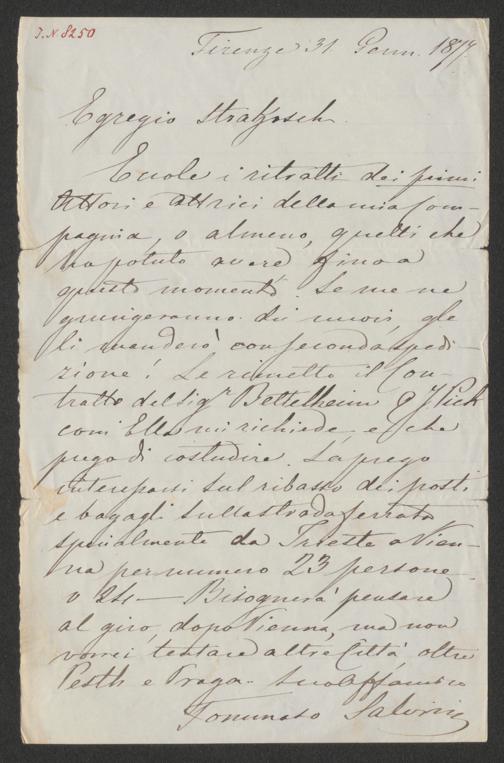 J.N 8250
Firenze 31 Genn. 1877.
Egregio Strakosch.
Eccole i ritratti dei primi
Attori e Attrici della mia Com-
pagnia, o almeno, quelli che
ho potuto avere fino a
questo momento. Se me ne
giungeranno dei nuovi, glie
li manderò con seconda spedi-
zione! Le rimetto il Con-
tratto del Sigr Bettelheim e J. Pick
com'Ella mi richiede e che
prego di custodire. La prego
interessarsi sul ribasso dei posti
e bagagli sulla strada ferrata
specialmente da Trieste a Vien-
na per numero 23 persone
o 24 — Bisognerà pensare
al giro, dopo Vienna, ma non
vorrei tentare altre Città oltre
Pesth e Praga. Suo Aff amico
Tommaso Salvini